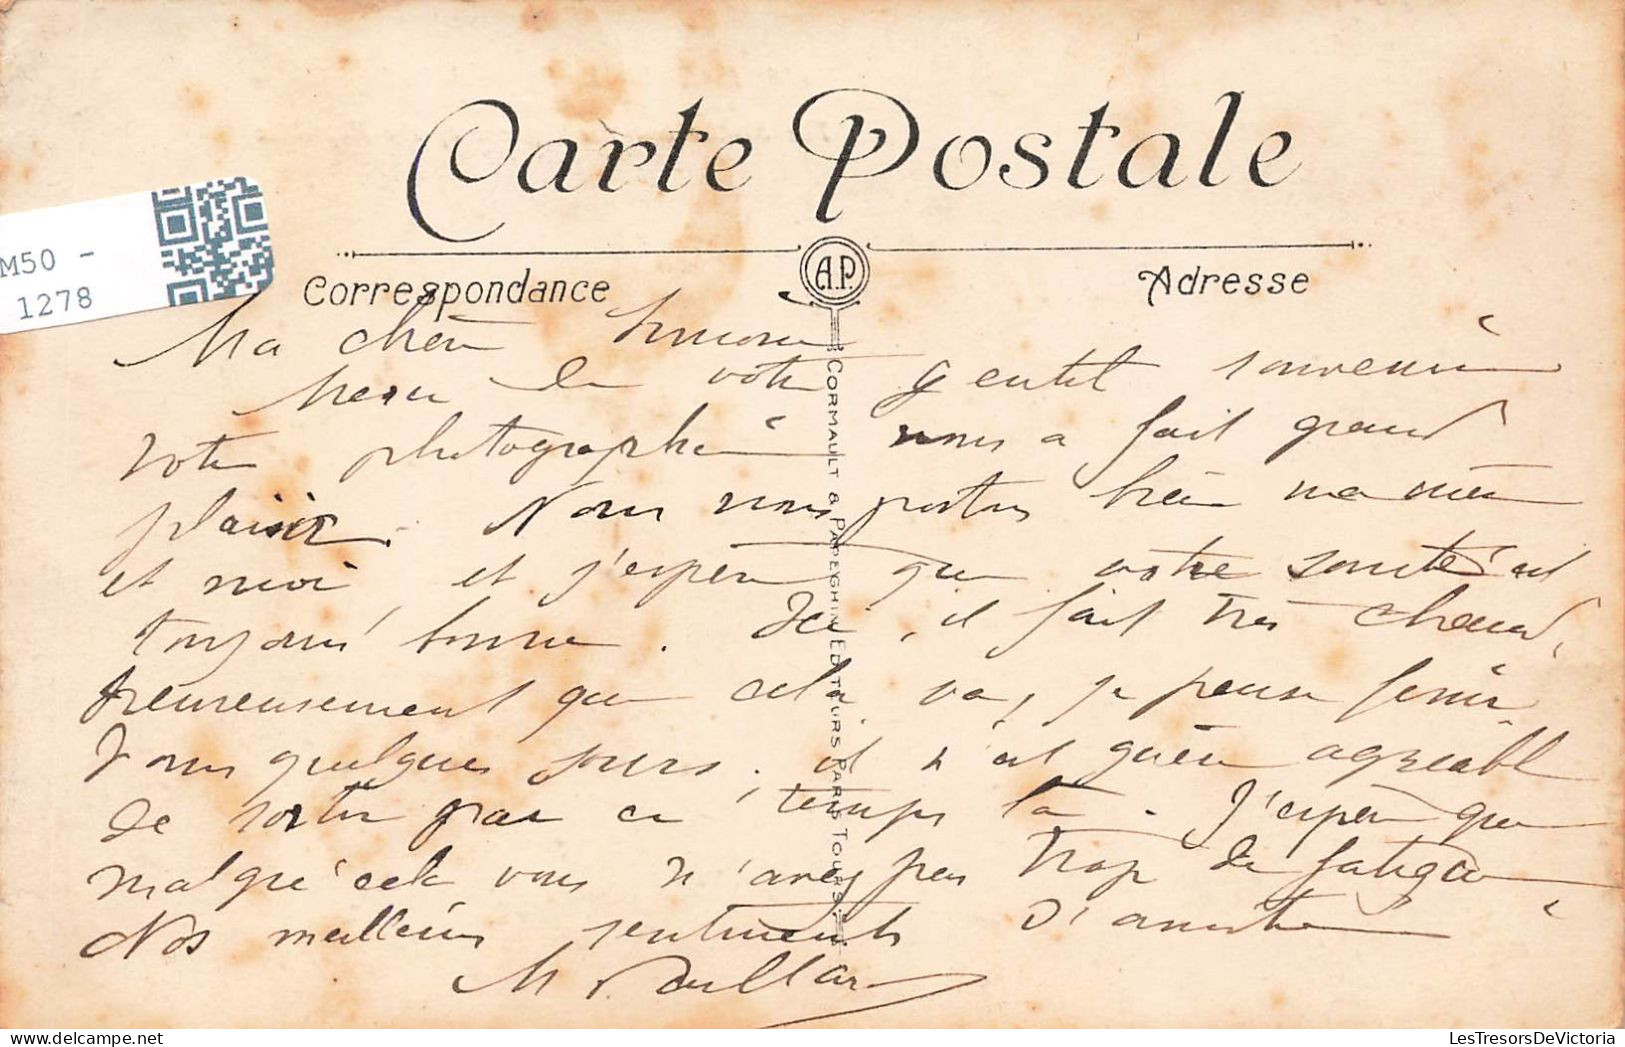 Carte Postale
M50 -
1278
Correspondance
A.P.
Adresse
CORMAULT & PAPEGHIN, EDITEURS PARIS TOURS
Ma chère
Merci de votre gentil souvenir
votre photographie nous a fait grand
plaisir. Nous nous portons bien ma mère
et moi et j'espère que votre santé est
toujours bonne. Ici, il fait très chaud,
heureusement que cela va, je pense finir
dans quelques jours. il n'est guère agréable
de sortir par ce temps là. J'espère que
malgré cela vous n'avez pas trop de fatigue
Nos meilleurs sentiments d'amitié
M
LesTresorsDeVictoria